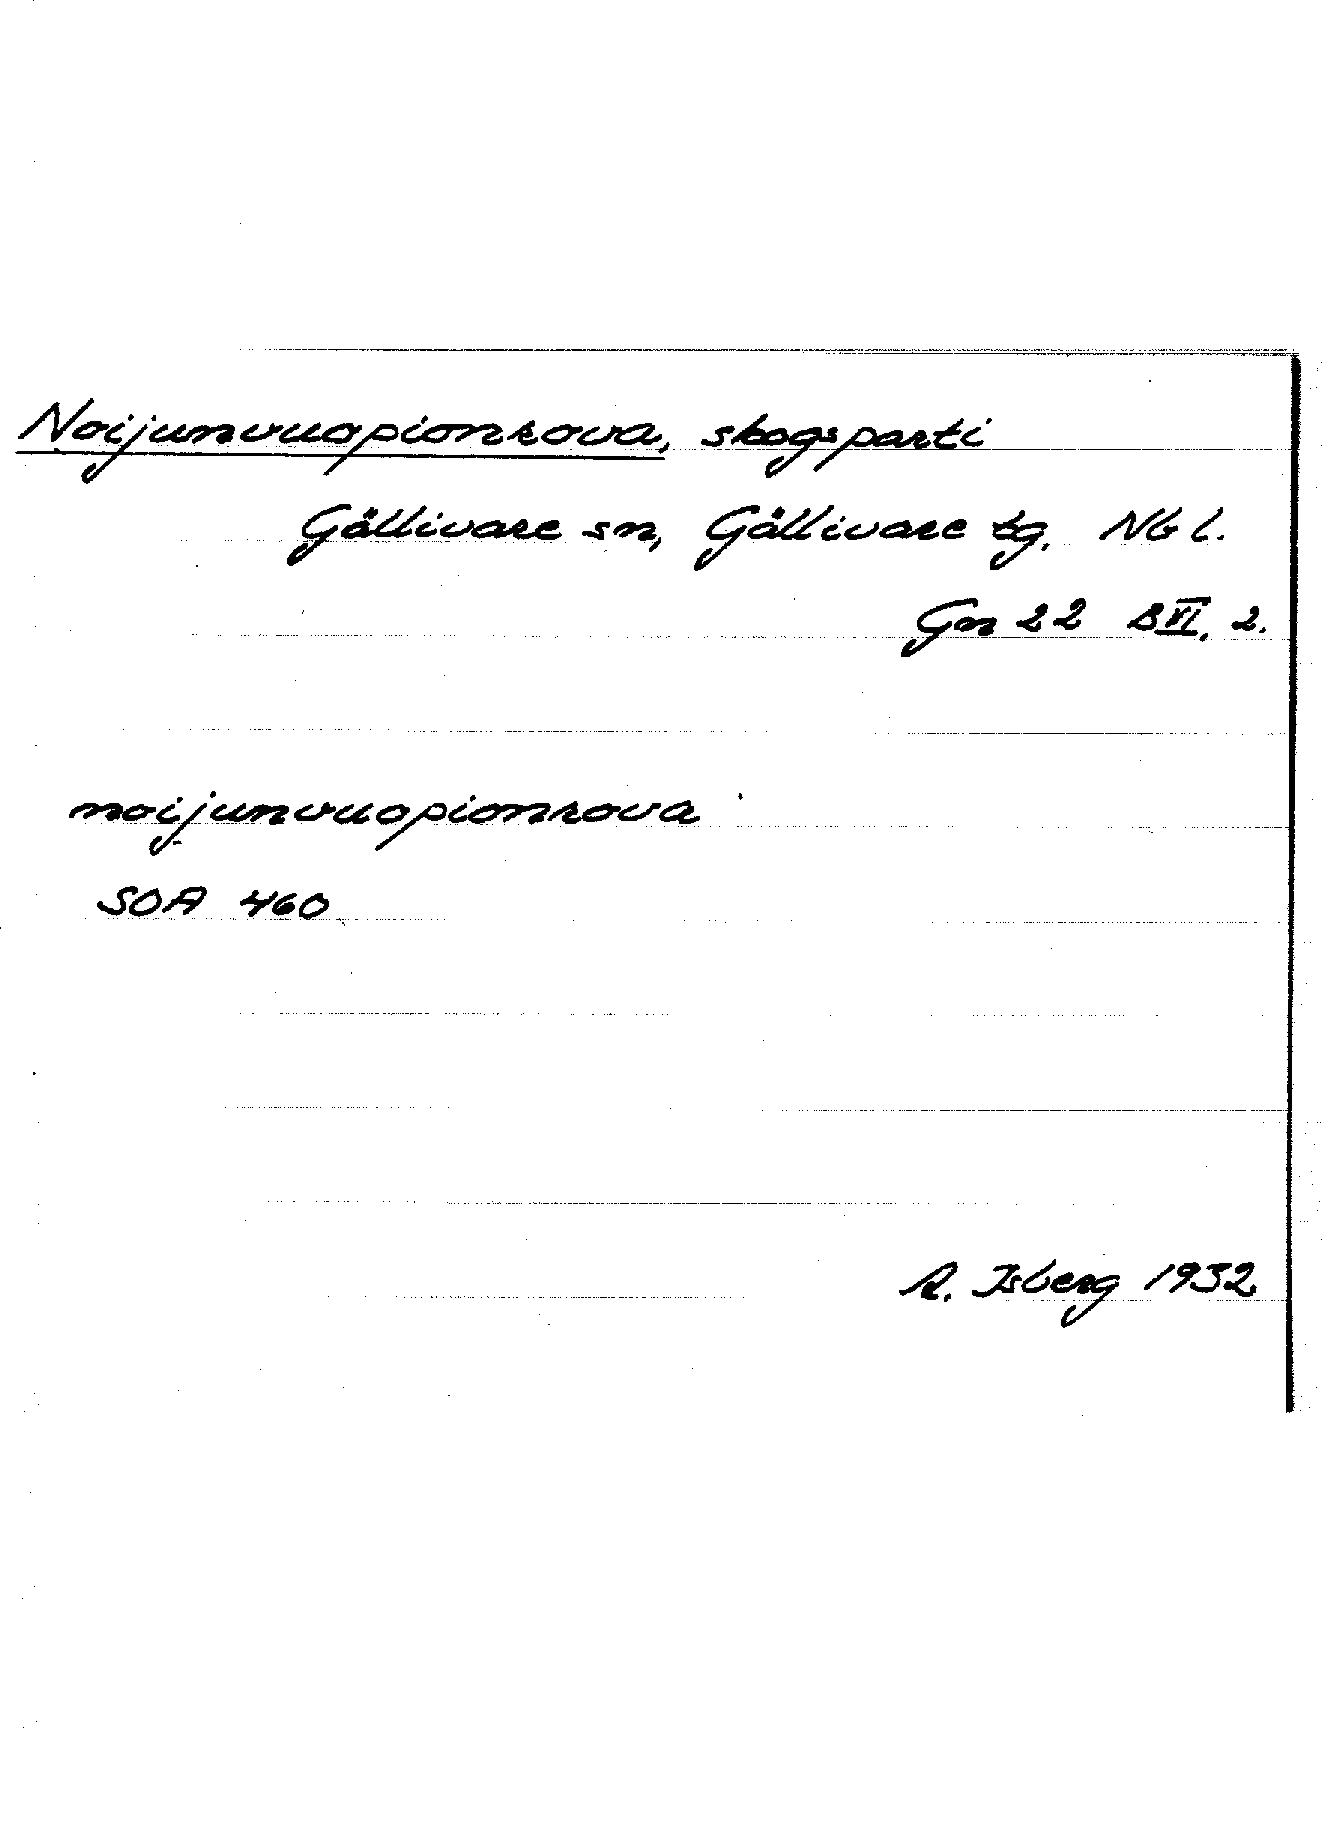 Noijunvuopionrova, skogsparti
Gällivare sn, Gällivare tg. Nb l.
Gn 22 BVI. 2.
noijunvuopionrova
SOA 460
R. Isberg 1932.